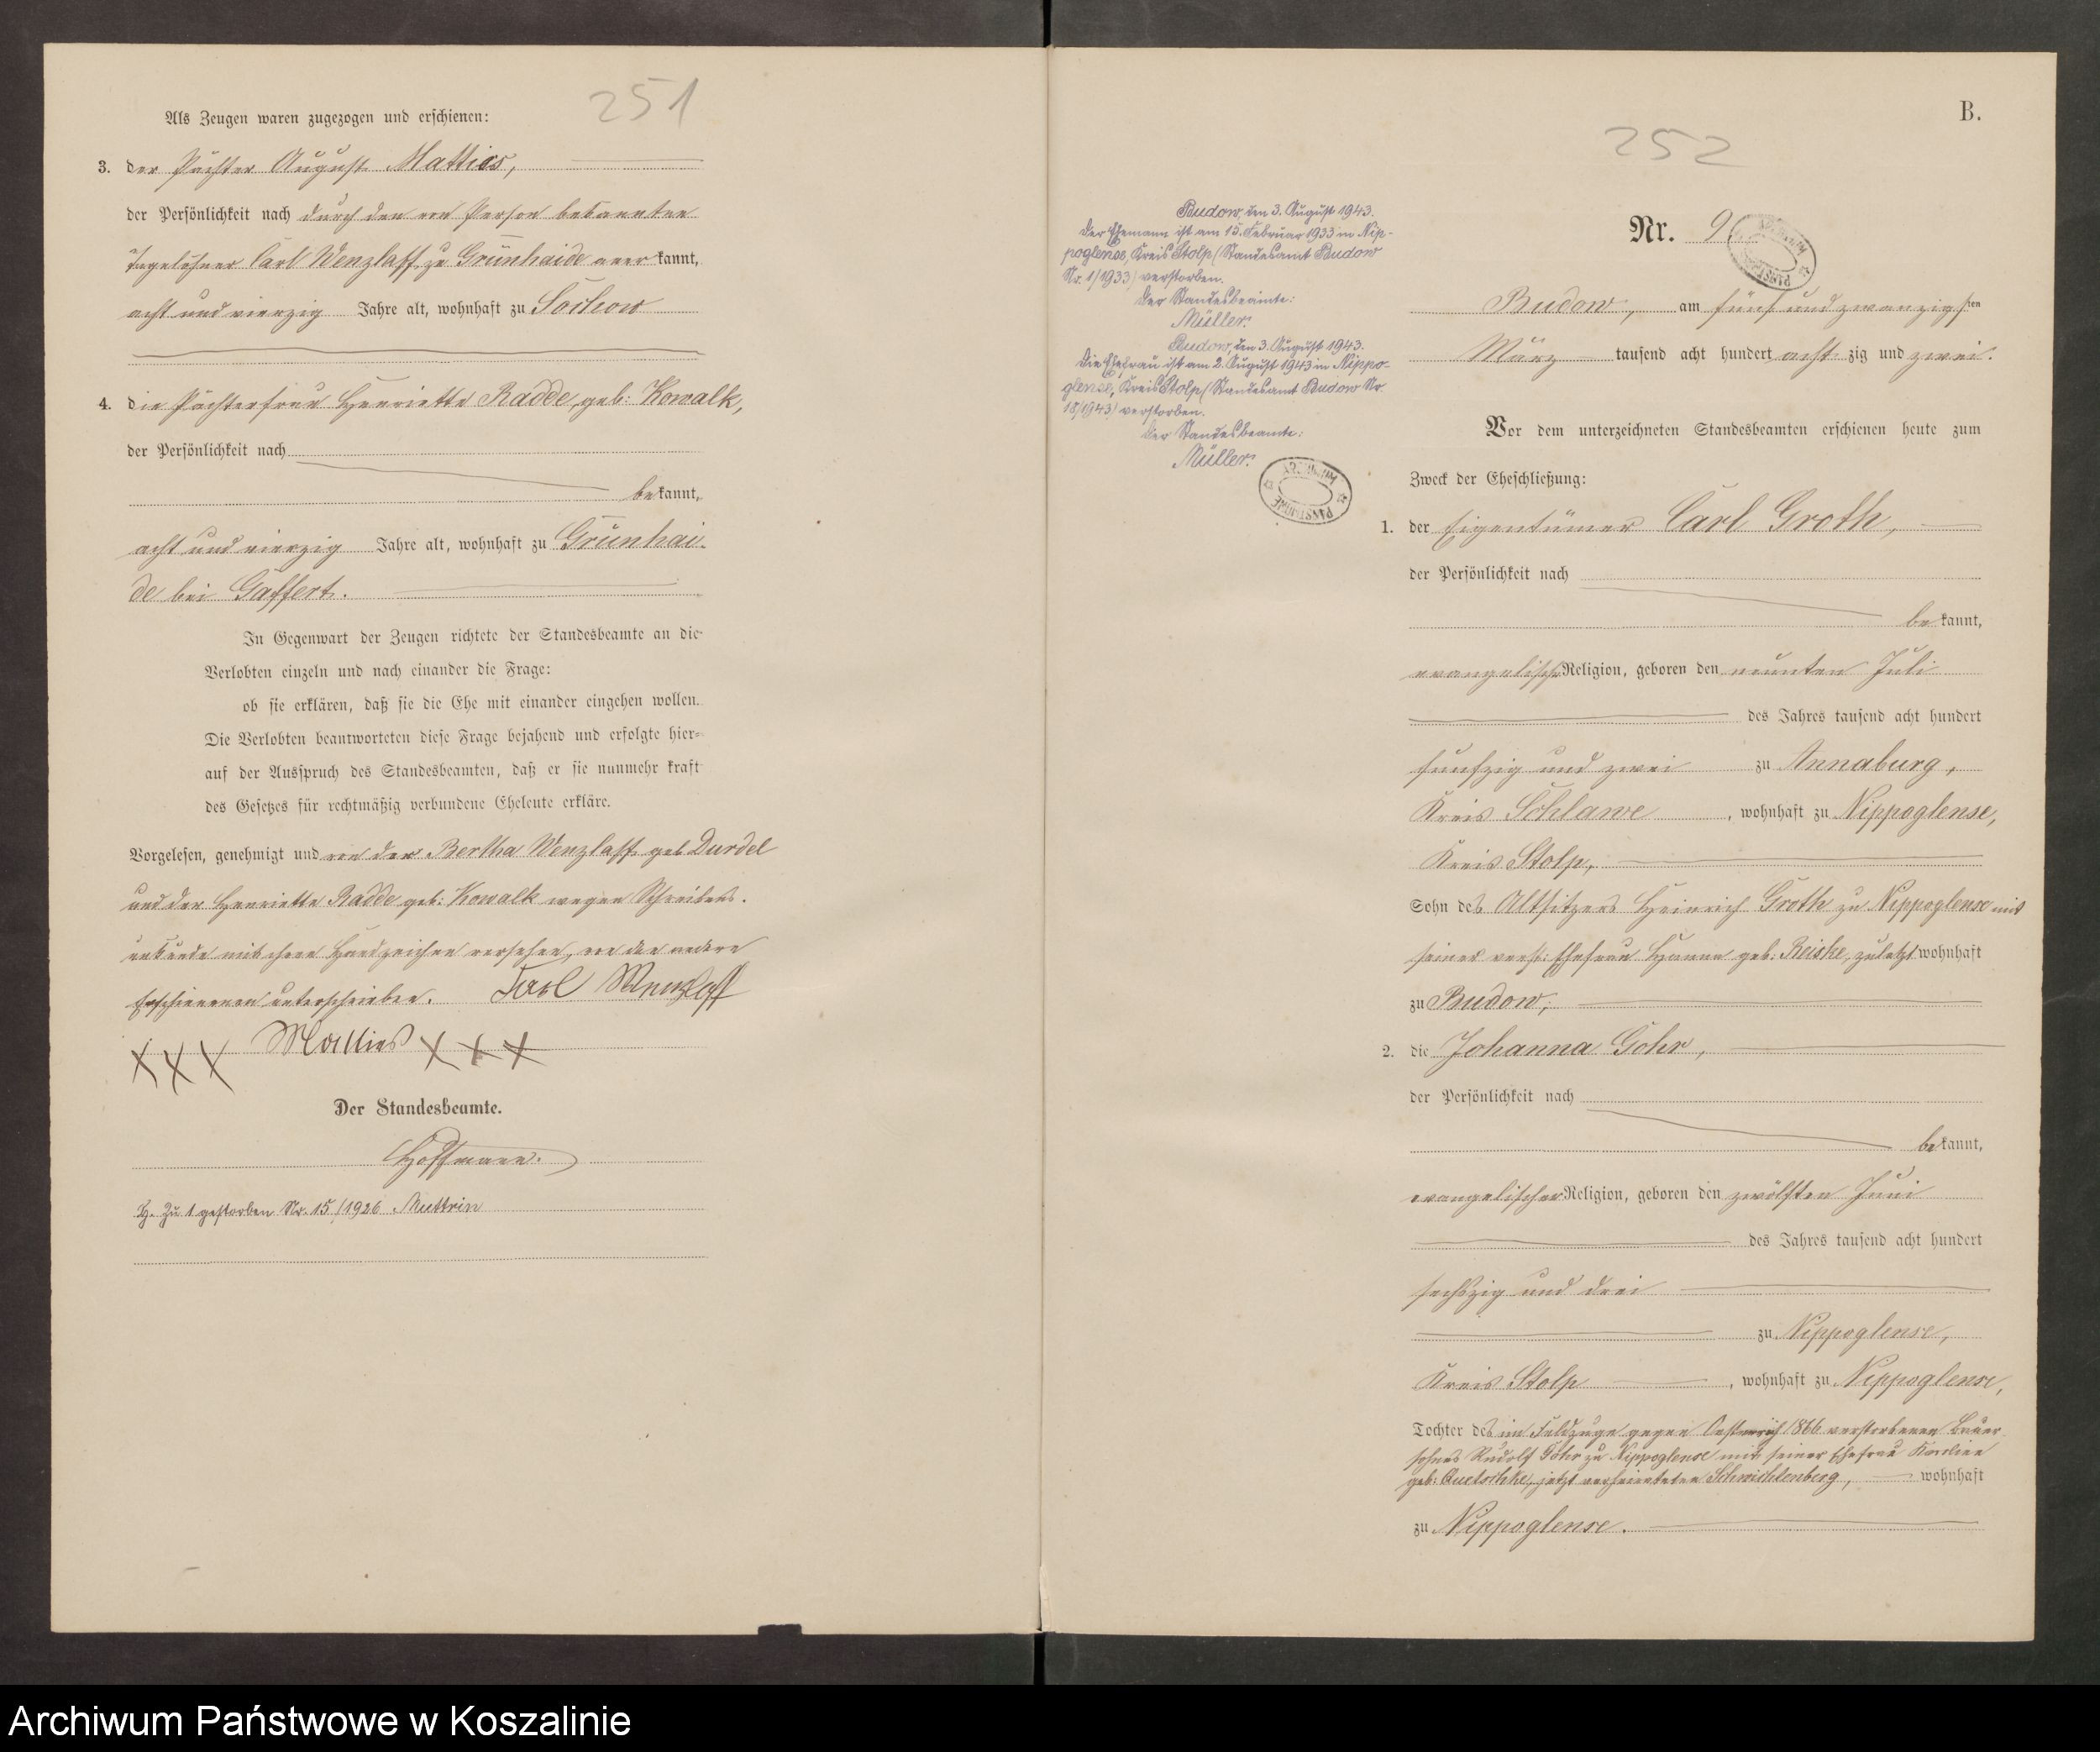 251
Als Zeugen waren zugezogen und erschienen:
3. der Pächter August Matties,
der Persönlichkeit nach durch den von Person bekannten
Tagelöhner Carl Wenzlaff zu Grünhaide anerkannt,
acht und vierzig Jahre alt, wohnhaft zu Sochow
4. die Pächterfrau Henriette Radde, geb: Kowalk,
der Persönlichkeit nach
bekannt,
acht und vierzig Jahre alt, wohnhaft zu Grünhai-
de bei Gaffert.
In Gegenwart der Zeugen richtete der Standesbeamte an die
Verlobten einzeln und nach einander die Frage:
ob sie erklären, daß sie die Ehe mit einander eingehen wollen.
Die Verlobten beantworteten diese Frage bejahend und erfolgte hier-
auf der Ausspruch des Standesbeamten, daß er sie nunmehr kraft
des Gesetzes für rechtmäßig verbundene Eheleute erkläre.
Vorgelesen, genehmigt und von der Bertha Wenzlaff geb Durdel
und der Henriette Radde geb: Kowalk wegen Schreibens-
unkunde mit ihren Handzeichen versehen, von den andern
Erschienenen unterschrieben. Carl Wenzlaff
XXX Matties XXX
Der Standesbeamte.
Hoffmann.
H. Zu 1 gestorben Nr. 15/1926 Muttrin
B.
252
Budow, den 3. August 1943.
Der Ehemann ist am 15. Februar 1933 in Nip-
poglense, Kreis Stolp (Standesamt Budow
Nr. 1/1933) verstorben.
Der Standesbeamte:
Müller.
Budow, den 3. August 1943.
Die Ehefrau ist am 2. August 1943 in Nippo-
glense, Kreis Stolp (Standesamt Budow Nr.
18/1943) verstorben.
Der Standesbeamte:
Müller.
ARCHIWUM PAŃSTWOWE
Nr. 9.
ARCHIWUM PAŃSTWOWE
Budow, am fünf und zwanzigsten
März tausend acht hundert achtzig und zwei.
Vor dem unterzeichneten Standesbeamten erschienen heute zum
Zweck der Eheschließung:
1. der Eigentümer Carl Groth,
der Persönlichkeit nach
bekannt,
evangelischer Religion, geboren den neunten Juli
des Jahres tausend acht hundert
funfzig und zwei zu Annaburg,
Kreis Schlawe, wohnhaft zu Nippoglense,
Kreis Stolp,
Sohn des Altsitzers Heinrich Groth zu Nippoglense mit
seiner verst: Ehefrau Hanna geb: Reiske, zuletzt wohnhaft
zu Budow,
2. die Johanna Gohr,
der Persönlichkeit nach
bekannt,
evangelischer Religion, geboren den zwölften Juni
des Jahres tausend acht hundert
sechszig und drei
zu Nippoglense,
Kreis Stolp, wohnhaft zu Nippoglense,
Tochter des im Feldzuge gegen Oestereich 1866 verstorbenen Bauer-
sohnes Rudolf Gohr zu Nippoglense mit seiner Ehefrau Karoline
geb: Quetschke, jetzt verheirateten Schwichtenberg, wohnhaft
zu Nippoglense.
Archiwum Państwowe w Koszalinie